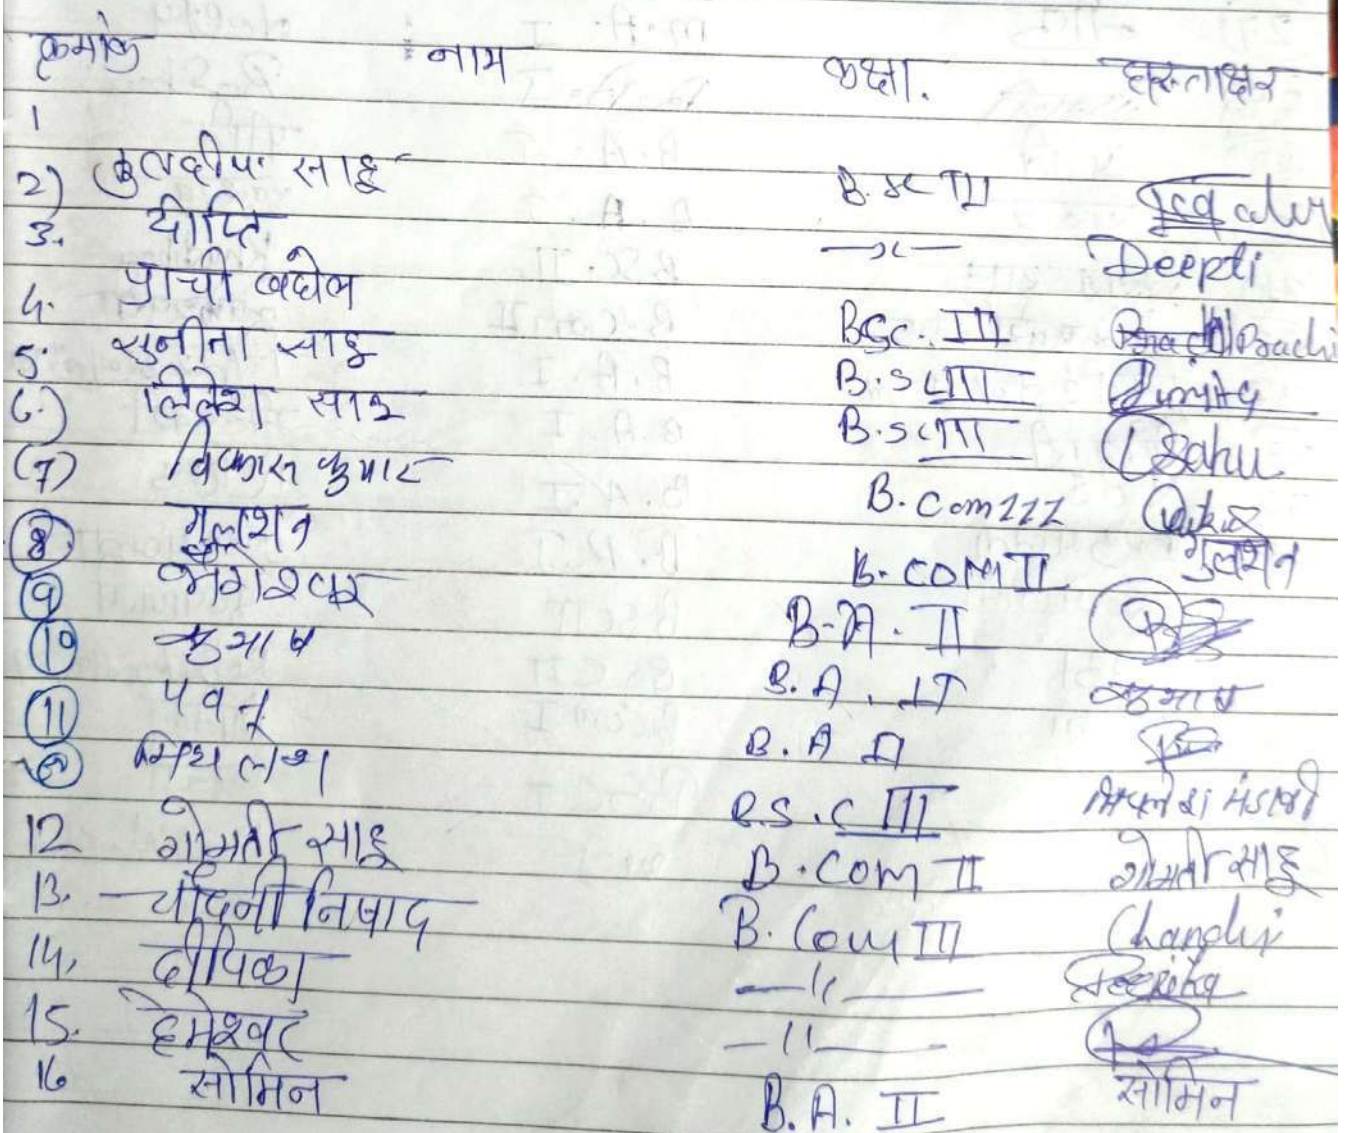 क्रमांक नाम कक्षा. हस्ताक्षर
1
2) कुलदीप साहू B.SC III
3. दीप्ति —〃— Deepti
4. प्राची बघेल BSc. III Prachi
5. सुनीता साहू B.SC III Sunita
6.) साहू B.SC III Sahu
(7) विकास कुमार B.Com III
8 गुलशन B.COM II गुलशन
9 B.A. II
10 B.A. II
11 पवन B.A II
मिथलेश B.S.C III
12 गोमती साहू B.COM II गोमती साहू
13. चांदनी निषाद B.Com III Chandni
14. दीपिका —〃— Deepika
15. हेमेश्वर —〃—
16 सोमिन B.A. II सोमिन